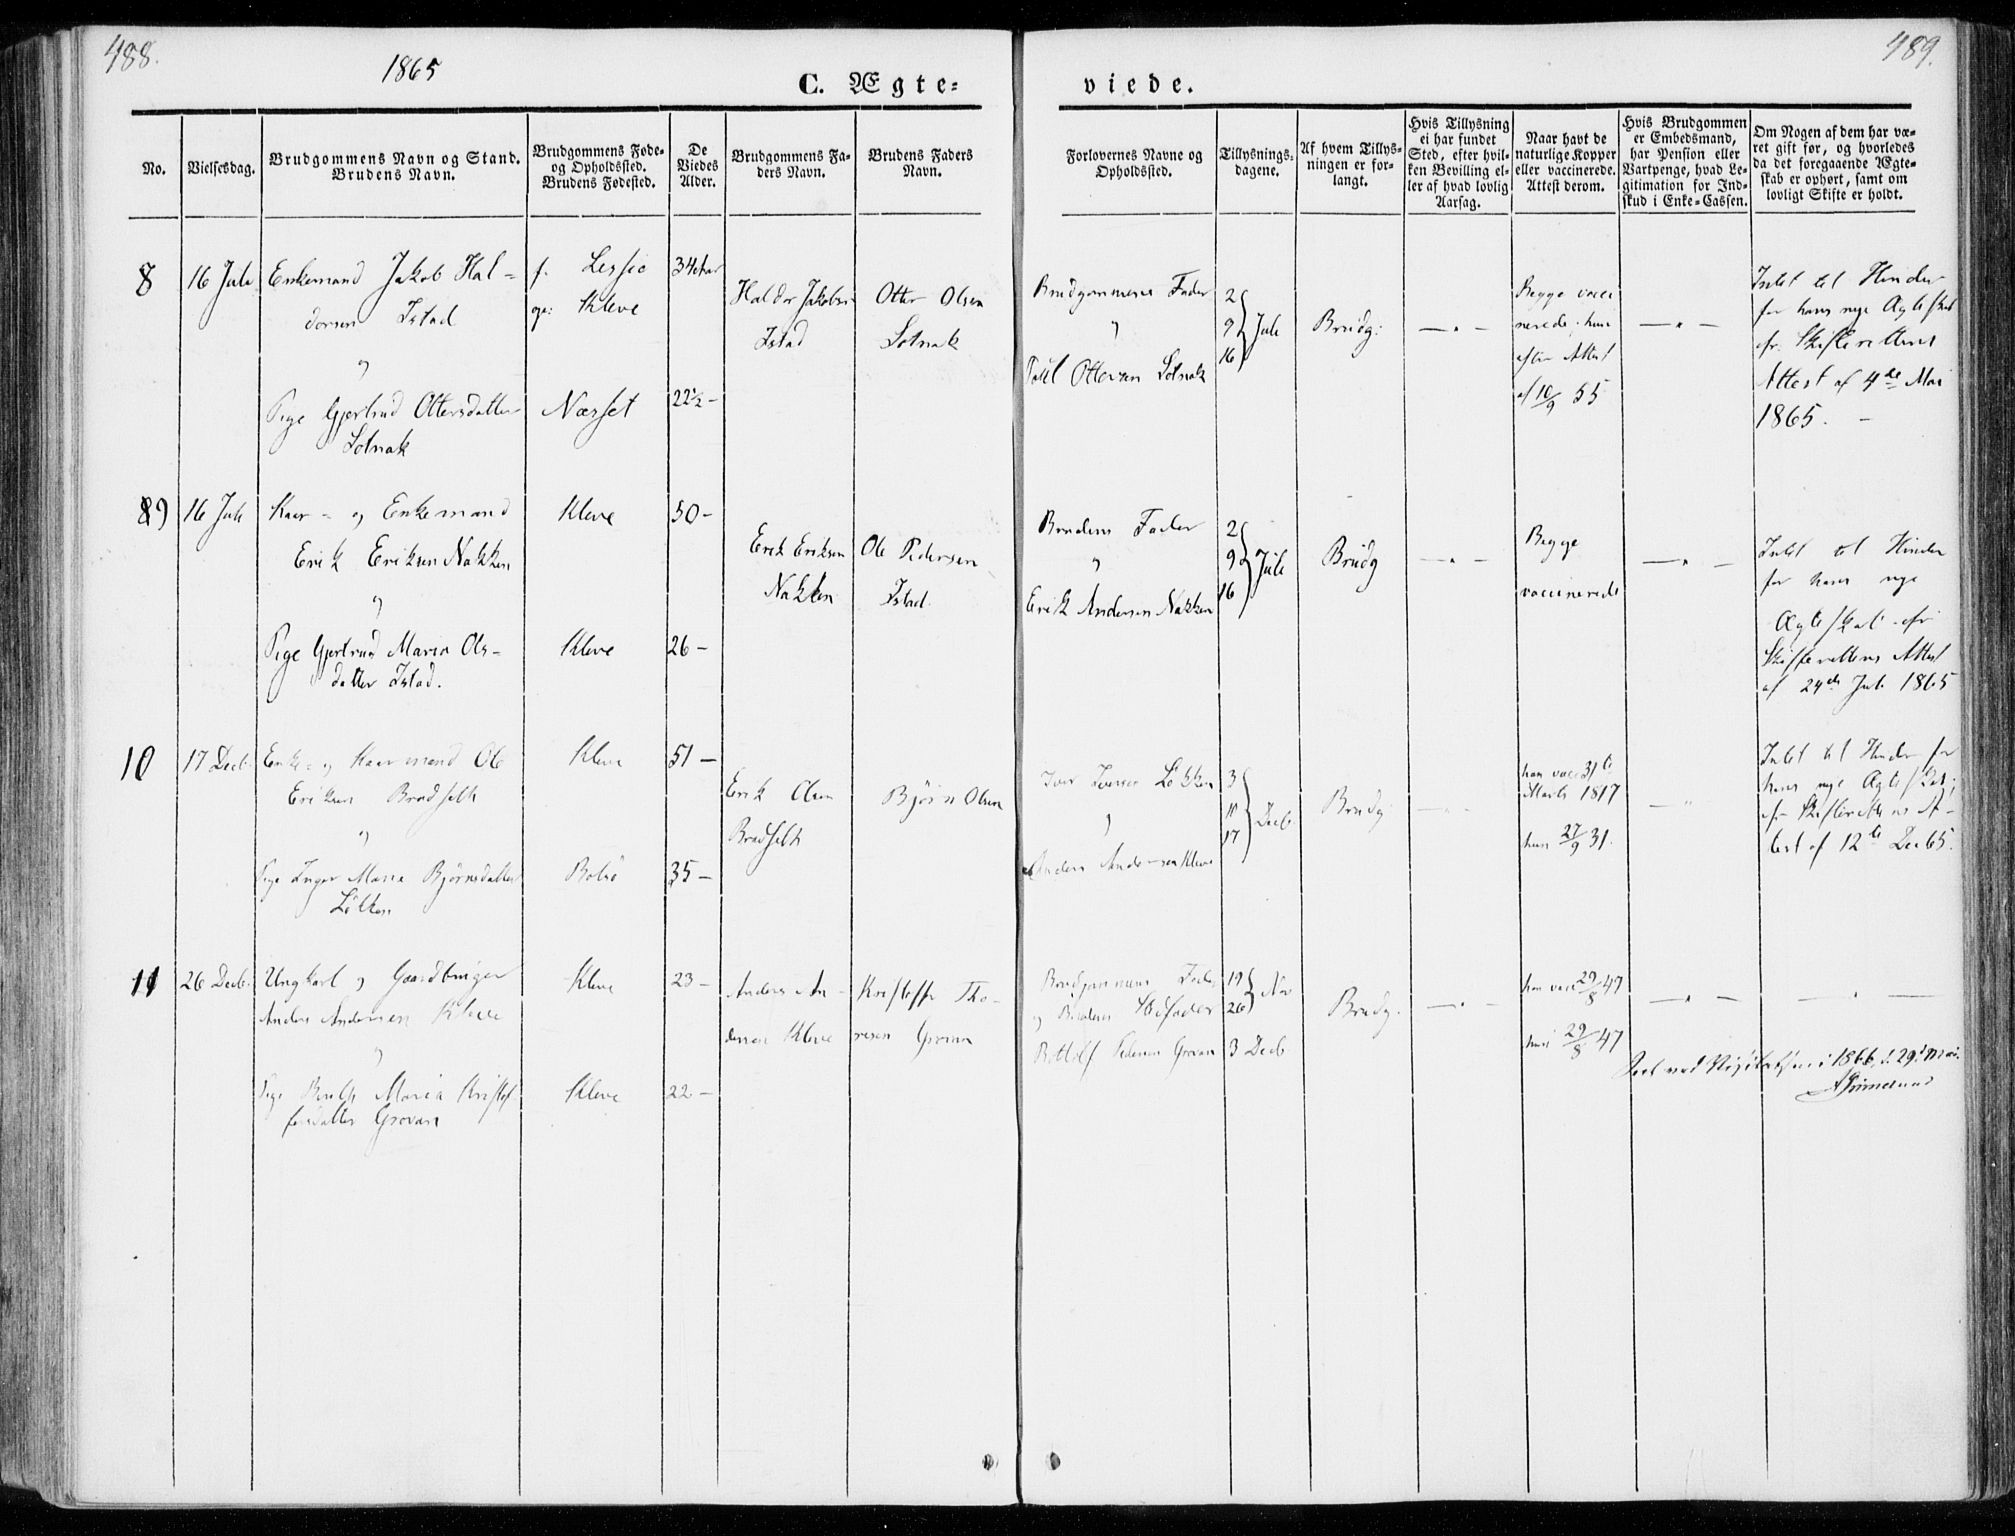 488.
489.
1865
C. Ægte=
viede.
No.
Vielsesdag.
Brudgommens Navn og Stand.
Brudens Navn.
Brudgommens Føde-
og Opholdssted.
Brudens Fødested.
De
Viedes
Alder.
Brudgommens Fa-
ders Navn.
Brudens Faders
Navn.
Forlovernes Navne og
Opholdssted.
Tillysnings-
dagene.
Af hvem Tillys-
ningen er for-
langt.
Hvis Tillysning
ei har fundet
Sted, efter hvil-
ken Bevilling el-
ler af hvad lovlig
Aarsag.
Naar havt de
naturlige Kopper
eller vaccinerede.
Attest derom.
Hvis Brudgommen
er Embedsmand,
har Pension eller
Vartpenge, hvad Le-
gitimation for Ind-
skud i Enke-Cassen.
Om Nogen af dem har væ-
ret gift før, og hvorledes
da det foregaaende Ægte-
skab er ophørt, samt om
lovligt Skifte er holdt.
8
16 Juli
Enkemand Jakob Hal-
dorsen Istad
"
Pige Gjertrud Ottersdatter
Solnak
f. Lessje
op: Kleve
Næsset
34 Aar
22½ -
Haldor Jakobsen
Istad
Otter Olsen
Solnak
Brudgommens Fader
"
Ottersen Solnak
2
9 Juli
16
Brudg:
— " —
Begge vacci
nerede. hun
efter Attest
af 10/9 55
— " —
Intet til Hinder
for hans nye Ægteskab
efr. Skifterettens
Attest af 4de Mai
1865. -
9
16 Juli
Kaar- og Enkemand
Erik Eriksen Nakken
"
Pige Gjertrud Maria Ols-
datter Istad.
Kleve
Kleve
50 -
26 -
Erik Eriksen
Nakken
Ole Pedersen
Istad.
Brudens Fader
"
Erik Andersen Nakken
2
9 Juli
16
Brudg
— " —
Begge
vaccinerede
— " —
Intet til Hinder
for hans nye
Ægteskab efr
Skifterettens Attest
af 24de Juli 1865
10
17 Decb.
Enke- og Kaarmand Ole
Eriksen Bradseth
"
Pige Inger Maria Bjørnsdatter
Løkken
Kleve
Bolsø
51 —
35 —
Erik Olsen
Bradseth
Bjørn Olsen
Iver Iversen Løkken
"
Anders Andersen Kleve
3
10 Decb.
17
Brudg
— " —
han vacc 31te
Marts 1817
hun 27/9 31.
— " —
Intet til Hinder for
hans nye Ægteskab,
efr Skifterettens At-
test af 12te Dec 65.
11
26 Decb.
Ungkarl og Gaardbruger
Anders Andersen Kleve
"
Pige Maria Kristof-
fersdatter Grovan
Kleve
Kleve
23 —
22 —
Anders An-
dersen Kleve
Kristoffer Tho-
resen Grovan
Brudgommens Fader
og Brudens
Pedersen Grovan
19
26 Nov
3 Decb.
Brudg.
— " —
han vacc 29/8 47
hun 29/8 47
— " —
— " —
Seet ved Visitatsen i 1866, d. 29. Mai.